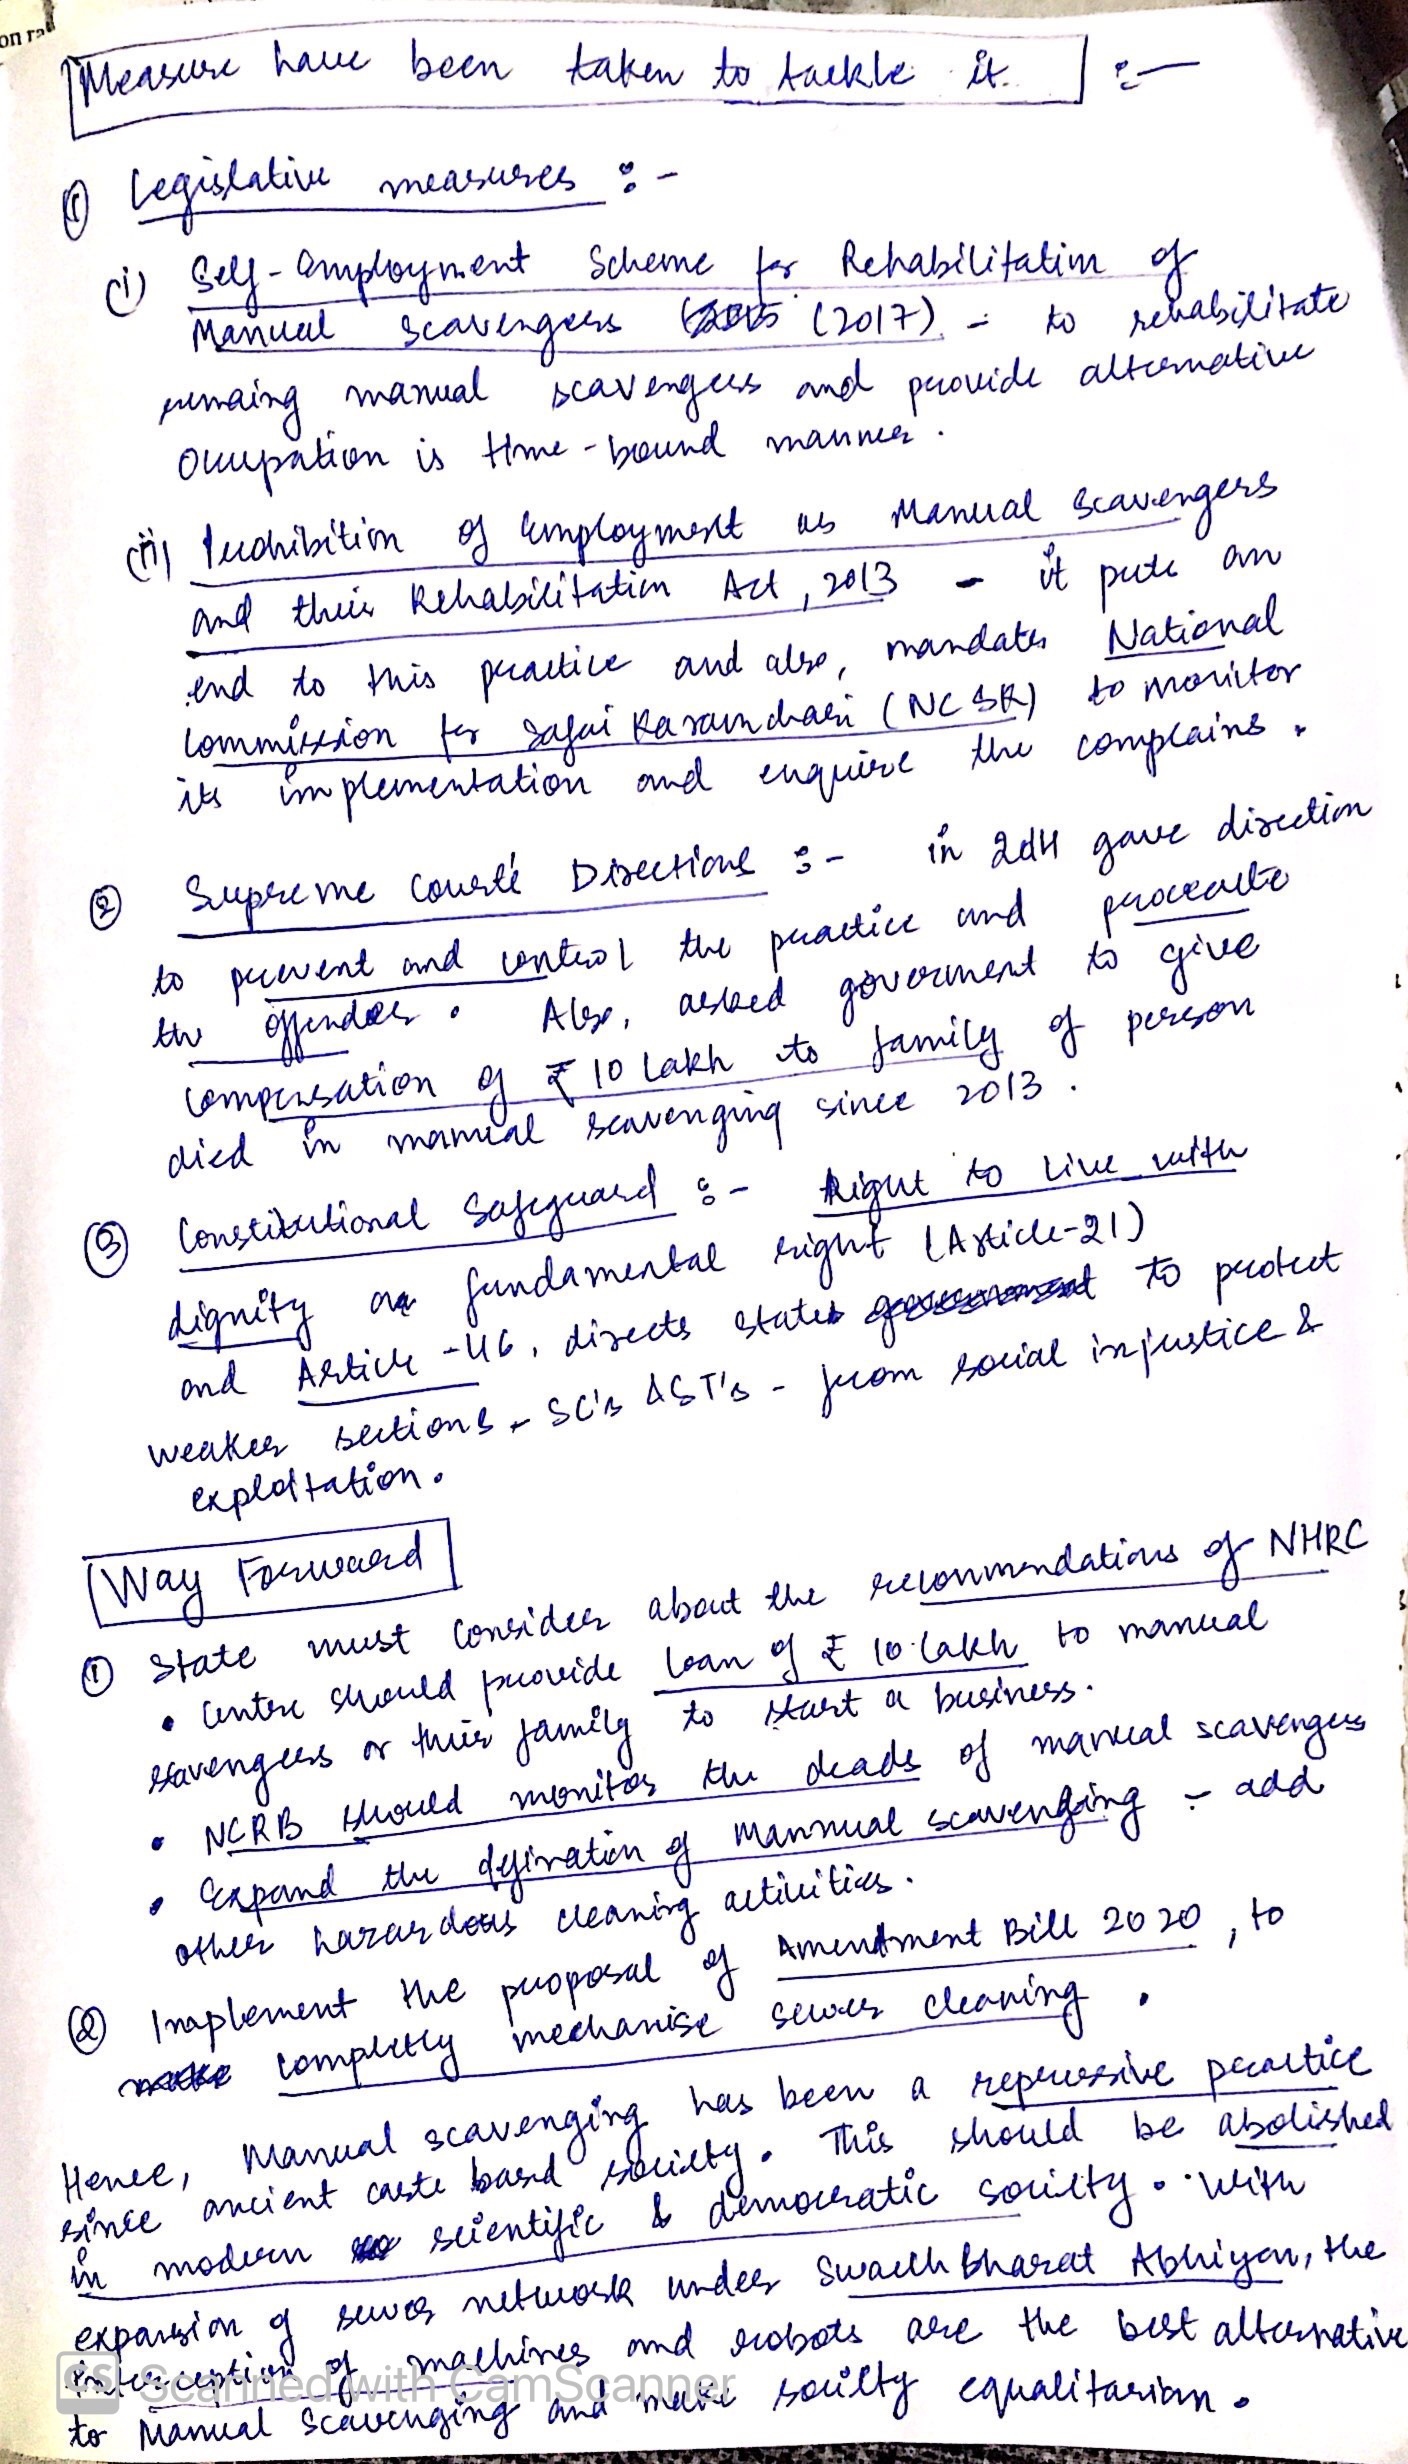 on ra
Measure have been taken to tackle it. :-
① Legislative measures :-
(i) Self-Employment Scheme for Rehabilitation of
Manual Scavengers (2017) - to rehabilitate
remaing manual scavengers and provide alternative
Occupation is time-bound manner.
(ii) Prohibition of Employment as Manual Scavengers
and their Rehabilitation Act, 2013 - it puts an
end to this practice and also, mandates National
Commission for Safai Karamchari (NCSK) to monitor
its implementation and enquire the complains.
② Supreme Court's Directions :- in 2014 gave direction
to prevent and control the practice and
the offenders. Also, asked goverment to give
compensation of ₹10 Lakh to family of person
died in manual scavenging since 2013.
③ Constitutional Safeguard :- Right to Live with
dignity as fundamental right (Article-21)
and Article-46, directs states to protect
weaker sections - SC's & ST's - from social injustice &
exploitation.
Way Forward
① State must consider about the recommendations of NHRC
• Centre should provide loan of ₹10 Lakh to manual
scavengers or their family to start a business.
• NCRB should monitor the deads of manual scavengers
• Expand the defination of Mannual scavenging - add
other hazardous cleaning activities.
② Implement the proposal of Amendment Bill 2020, to
completly mechanise sewer cleaning.
Hence, Manual scavenging has been a repressive practice
since ancient caste based society. This should be abolished
in modern scientific & democratic society. With
expansion of sewer network under Swachh Bharat Abhiyan, the
of machines and robots are the best alternative
to Manual Scavenging and make society equalitarian.
CS Scanned with CamScanner